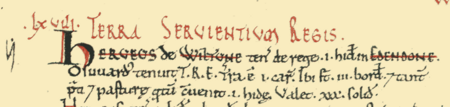 lxviii. TERRA SERVIENTIUM REGIS.
HERVEUS de WILTUNE ten̄ de rege .i. hid̄ in EDENDONE.
Osuuard tenuit T.R.E. Tra ē .i. car̄. Ibi st̄ .iii. bord̄. 7 tant̄
p̄ti 7 pasturę quā ꝯuenit .i. hidę. Valet .xx. solid̄.